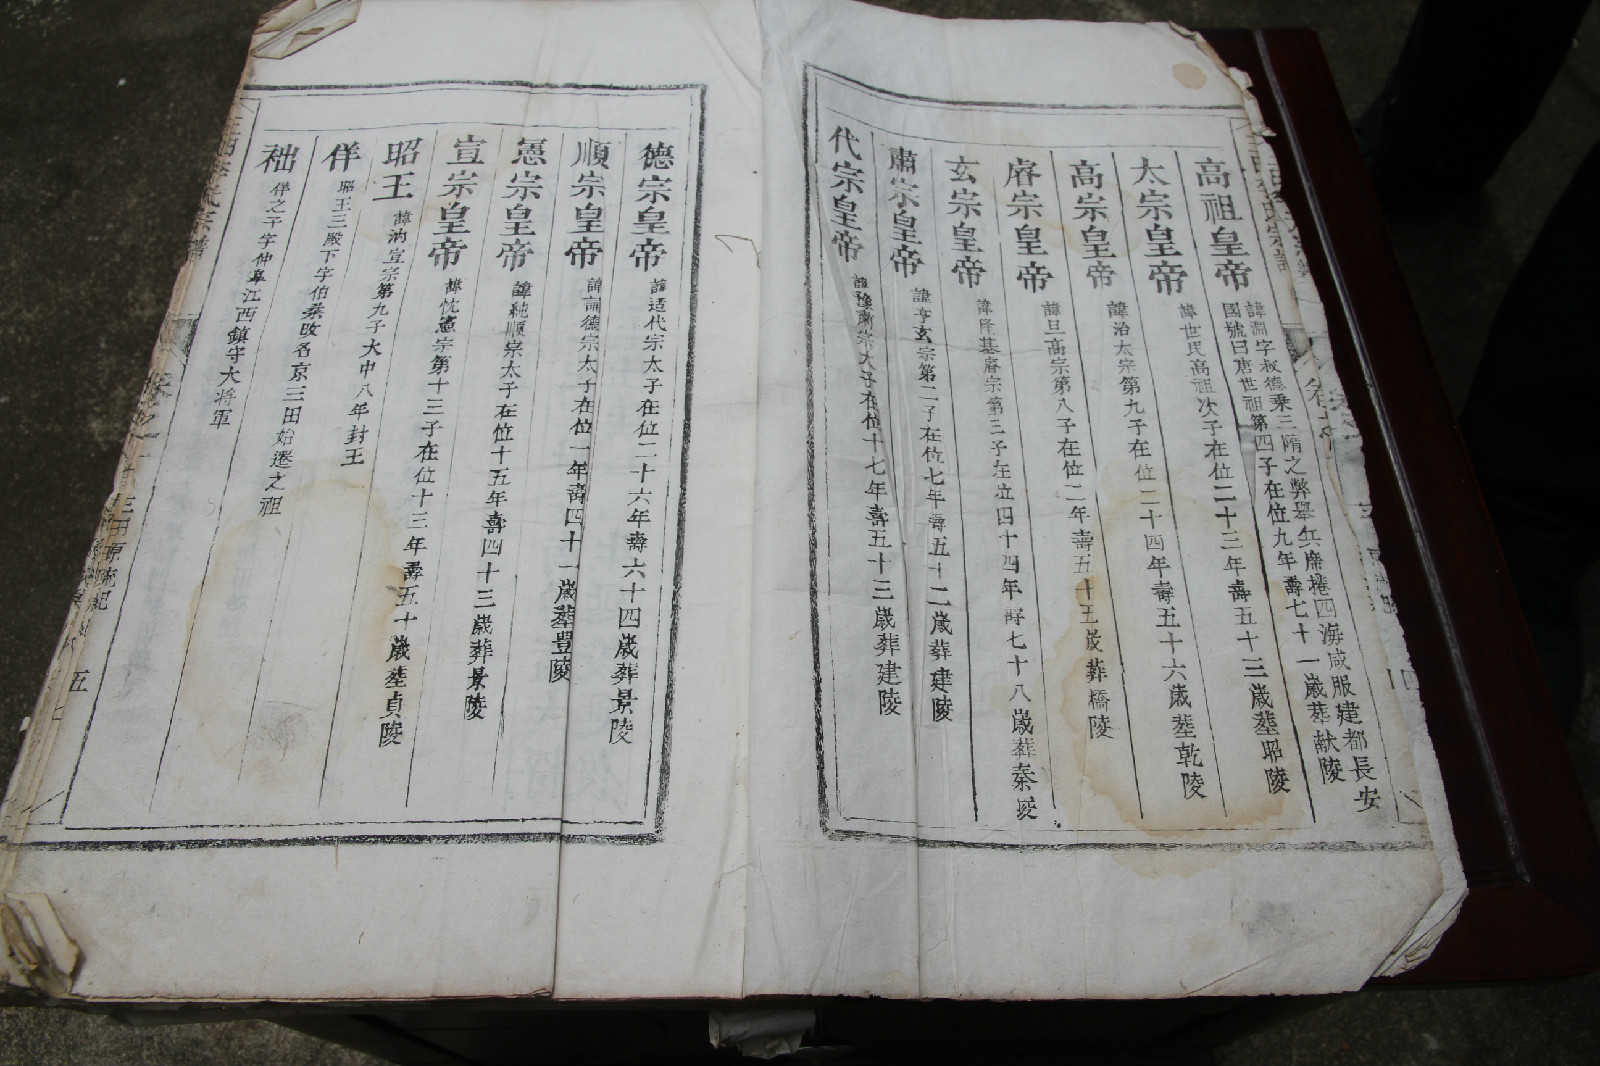 高祖皇帝
諱淵字叔德乗三隋之弊舉兵席捲四海咸服建都長安
國號曰唐世祖第四子在位九年壽七十一歲葬献陵
太宗皇帝 諱世民高祖次子在位二十三年壽五十三歲塟昭陵
高宗皇帝 諱治太宗第九子在位二十四年壽五十六歲塟乾陵
睿宗皇帝 諱旦高宗第八子在位二年壽五十五歲葬橋陵
玄宗皇帝 諱隆基睿宗第三子在位四十四年壽七十八歲葬秦陵
肅宗皇帝 諱亨玄宗第二子在位七年壽五十二歲葬建陵
代宗皇帝 諱豫肅宗太子在位十七年壽五十三歲葬建陵
德宗皇帝 諱适代宗太子在位二十六年壽六十四歲葬景陵
順宗皇帝 諱誦德宗太子在位一年壽四十一歲塟豐陵
憲宗皇帝 諱純順宗太子在位十五年壽四十三歲葬景陵
宣宗皇帝 諱忱憲宗第十三子在位十三年壽五十歲塟貞陵
昭王 諱汭宣宗第九子大中八年封王
佯 昭王三殿下字伯桑改名京三田始遷之祖
祉 佯之子字仲皐江西鎮守大将軍
三田李氏宗譜
卷之一
三田源流紀
五